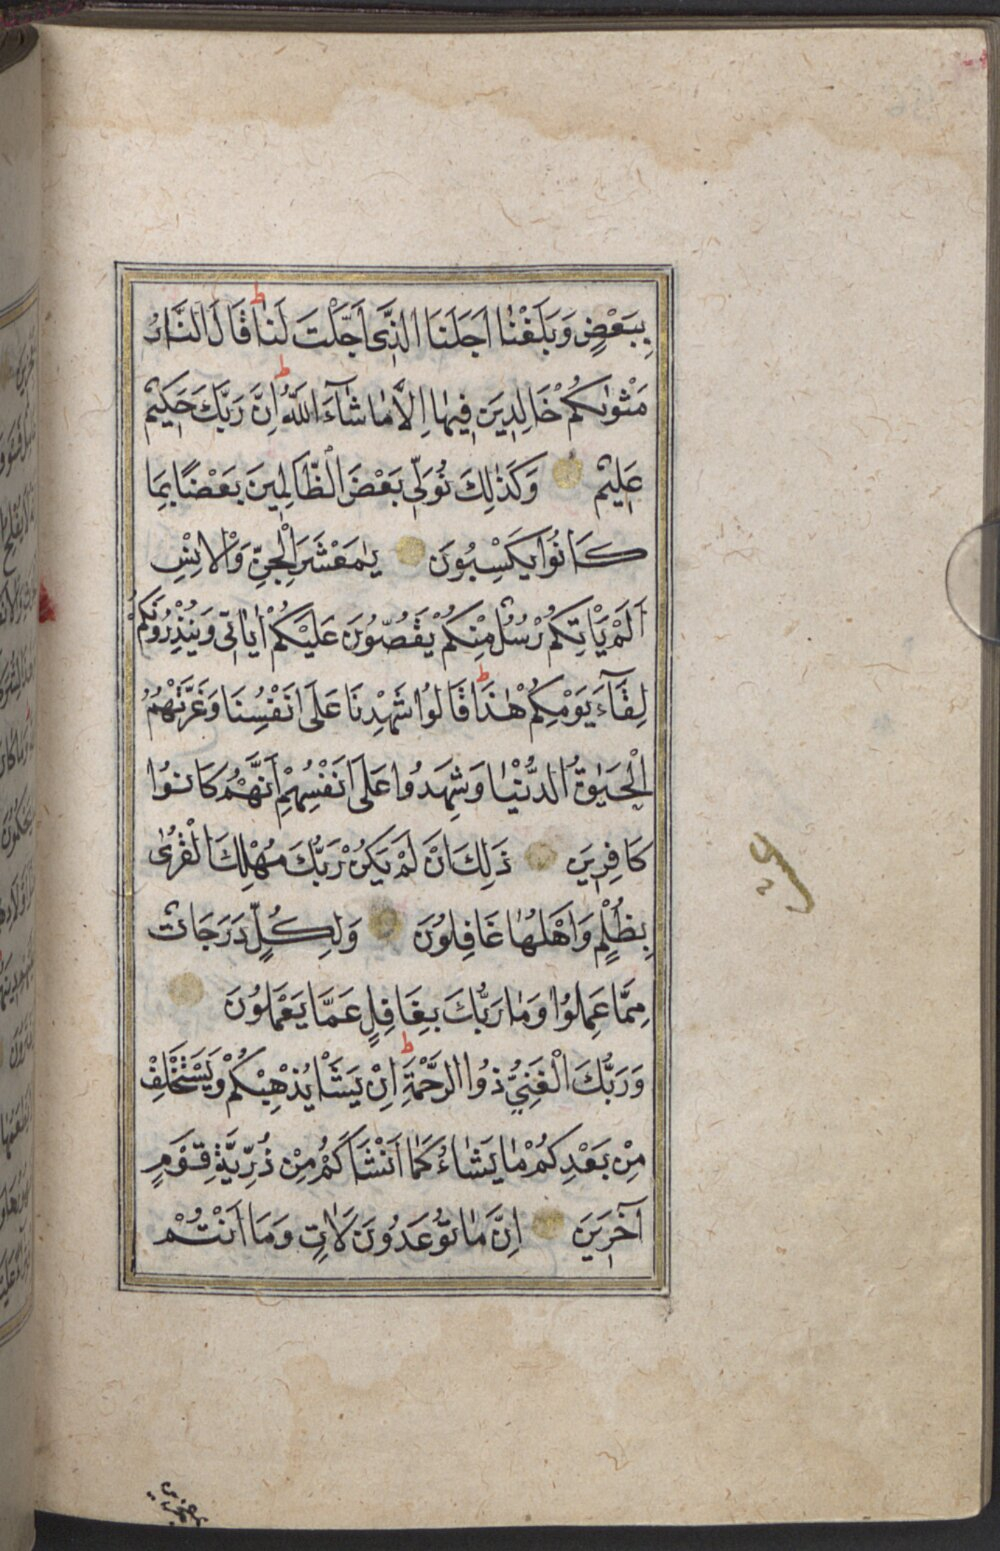 بِبَعْضٍ وَبَلَغْنَا اَجَلَنَا الَّذِى اَجَّلْتَ لَنَا ط قَالَ النَّارُ
مَثْوٰيكُمْ خَالِدِينَ فِيهَا اِلَّا مَا شَآءَ اللّٰهُ ط اِنَّ رَبَّكَ حَكِيمٌ
عَلِيمٌ وَكَذٰلِكَ نُوَلِّى بَعْضَ الظَّالِمِينَ بَعْضًا بِمَا
كَانُوا يَكْسِبُونَ يَا مَعْشَرَ الْجِنِّ وَالْاِنْسِ
اَلَمْ يَأْتِكُمْ رُسُلٌ مِنْكُمْ يَقُصُّونَ عَلَيْكُمْ اٰيَاتِى وَيُنْذِرُونَكُمْ
لِقَآءَ يَوْمِكُمْ هٰذَا ط قَالُوا شَهِدْنَا عَلَى اَنْفُسِنَا وَغَرَّتْهُمُ
الْحَيٰوةُ الدُّنْيَا وَشَهِدُوا عَلَى اَنْفُسِهِمْ اَنَّهُمْ كَانُوا
كَافِرِينَ ذَلِكَ اَنْ لَمْ يَكُنْ رَبُّكَ مُهْلِكَ الْقُرٰى
بِظُلْمٍ وَاَهْلُهَا غَافِلُونَ وَلِكُلٍّ دَرَجَاتٌ
مِمَّا عَمِلُوا وَمَا رَبُّكَ بِغَافِلٍ عَمَّا يَعْمَلُونَ
وَرَبُّكَ الْغَنِىُّ ذُوا الرَّحْمَةِ ط اِنْ يَشَأْ يُذْهِبْكُمْ وَيَسْتَخْلِفْ
مِنْ بَعْدِكُمْ مَا يَشَاءُ كَمَا اَنْشَاَكُمْ مِنْ ذُرِّيَّةِ قَوْمٍ
آخَرِينَ اِنَّ مَا تُوعَدُونَ لَاٰتٍ وَمَا اَنْتُمْ